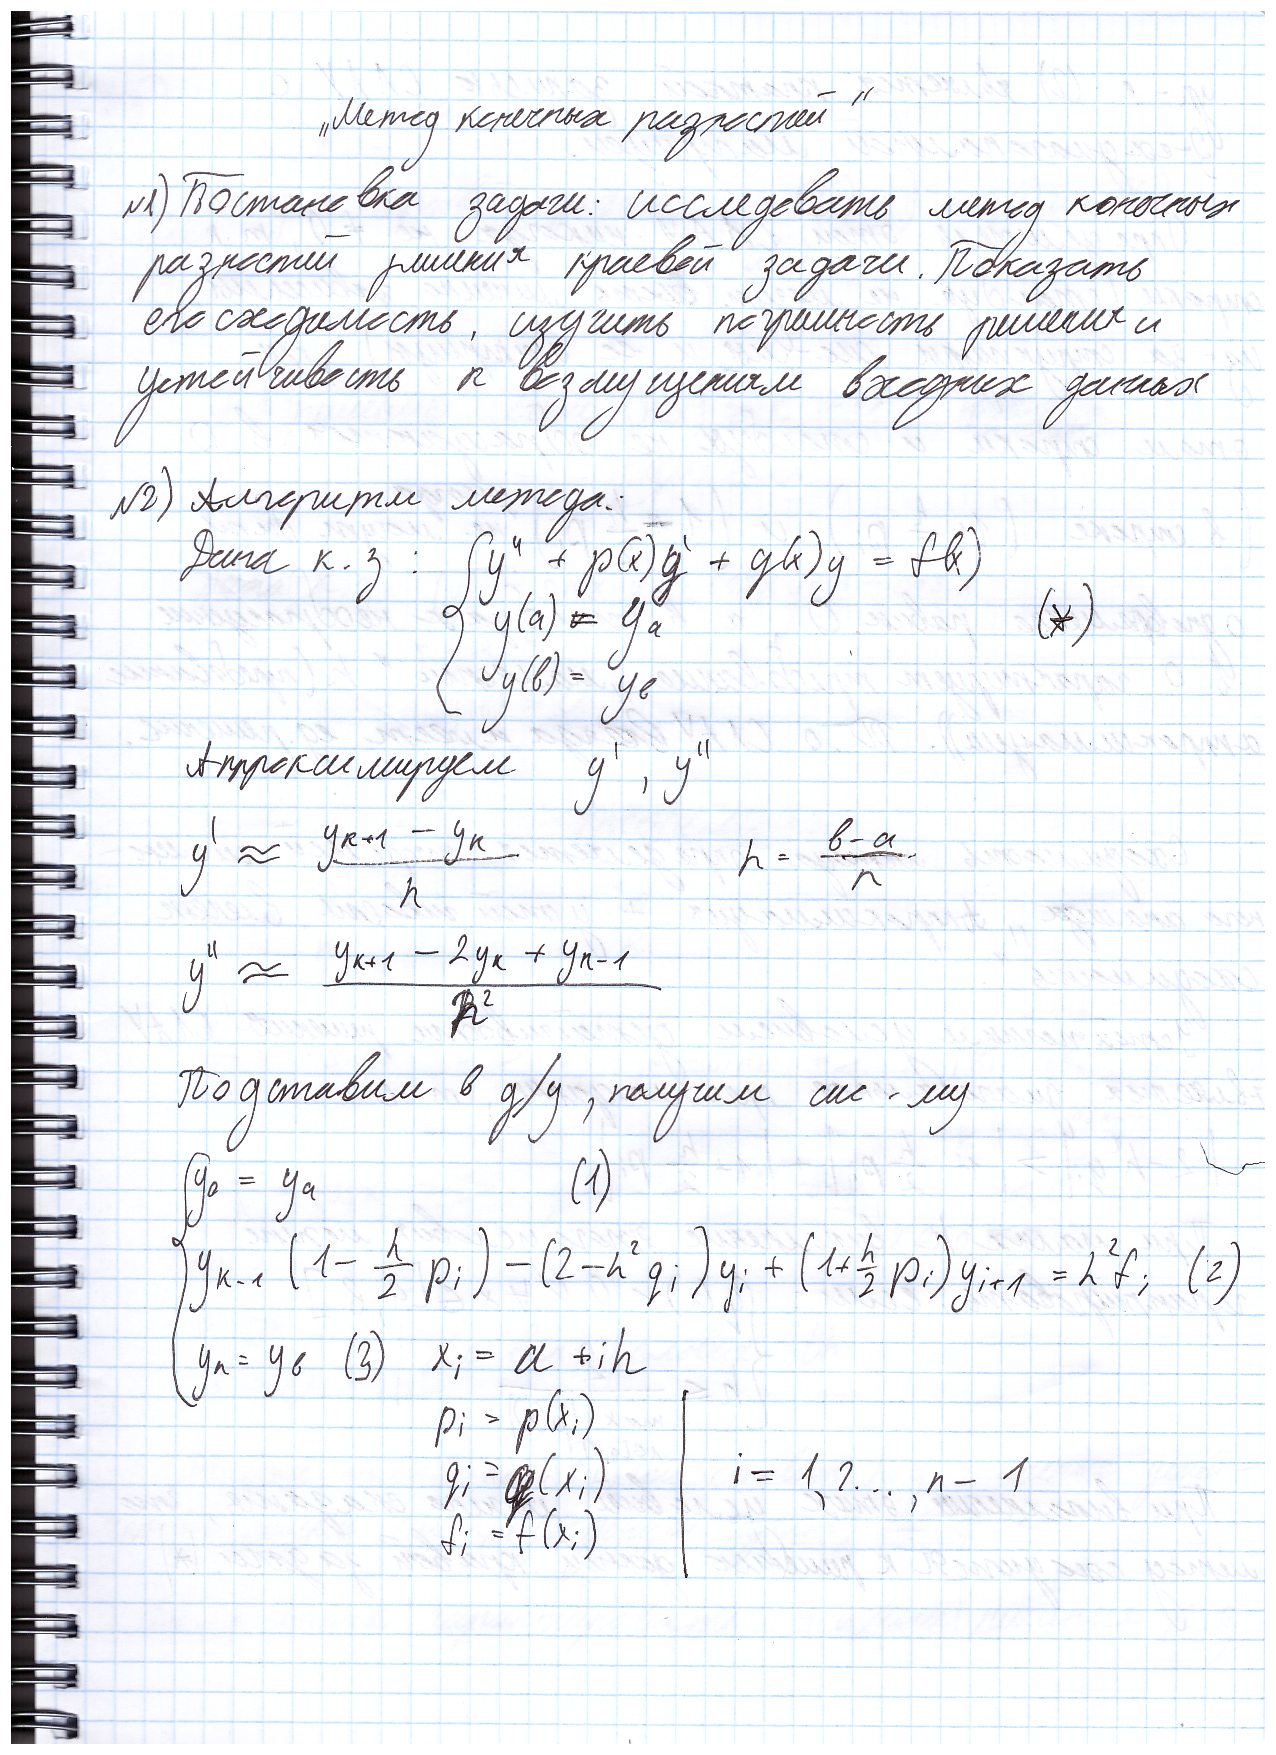 „Метод конечных разностей“
№1) Постановка задачи: исследовать метод конечных
разностей решения краевой задачи. Показать
его сходимость, изучить погрешность решения и
устойчивость к возмущениям входных данных
№2) Алгоритм метода:
Дана к.з: { y'' + p(x)y' + q(x)y = f(x)
y(a) = yₐ (*)
y(в) = y_в
Аппроксимируем y', y''
y' ≈ (y_{к+1} − y_к)/h h = (в−a)/n
y'' ≈ (y_{к+1} − 2y_к + y_{к−1})/h²
Подставим в д/у, получим сис-му
{ y₀ = yₐ (1)
y_{к−1} (1 − h/2 p_i) − (2 − h² q_i) y_i + (1 + h/2 p_i) y_{i+1} = h² f_i (2)
y_n = y_в (3) x_i = a + ih
p_i = p(x_i)
q_i = q(x_i) | i = 1, 2..., n − 1
f_i = f(x_i)